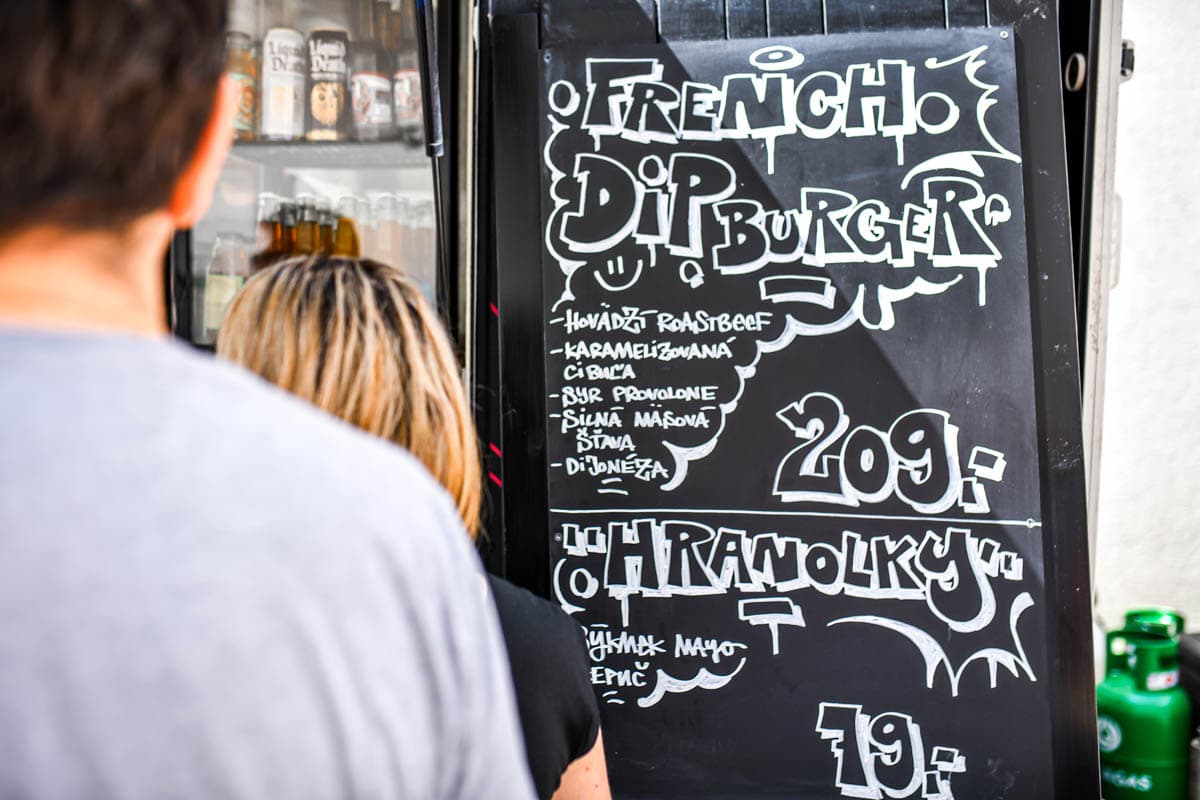 Liquid Death
Liquid Death
FRENCH
DiP BURGER
-HOVÄDZÍ ROASTBEEF
-KARAMELIZOVANÁ
CIBUĽA
-SYR PROVOLONE
-SILNÁ MÄSOVÁ
ŠŤAVA
-DIJONÉZA
209,-
"HRANOLKY"
MAYO
79,-